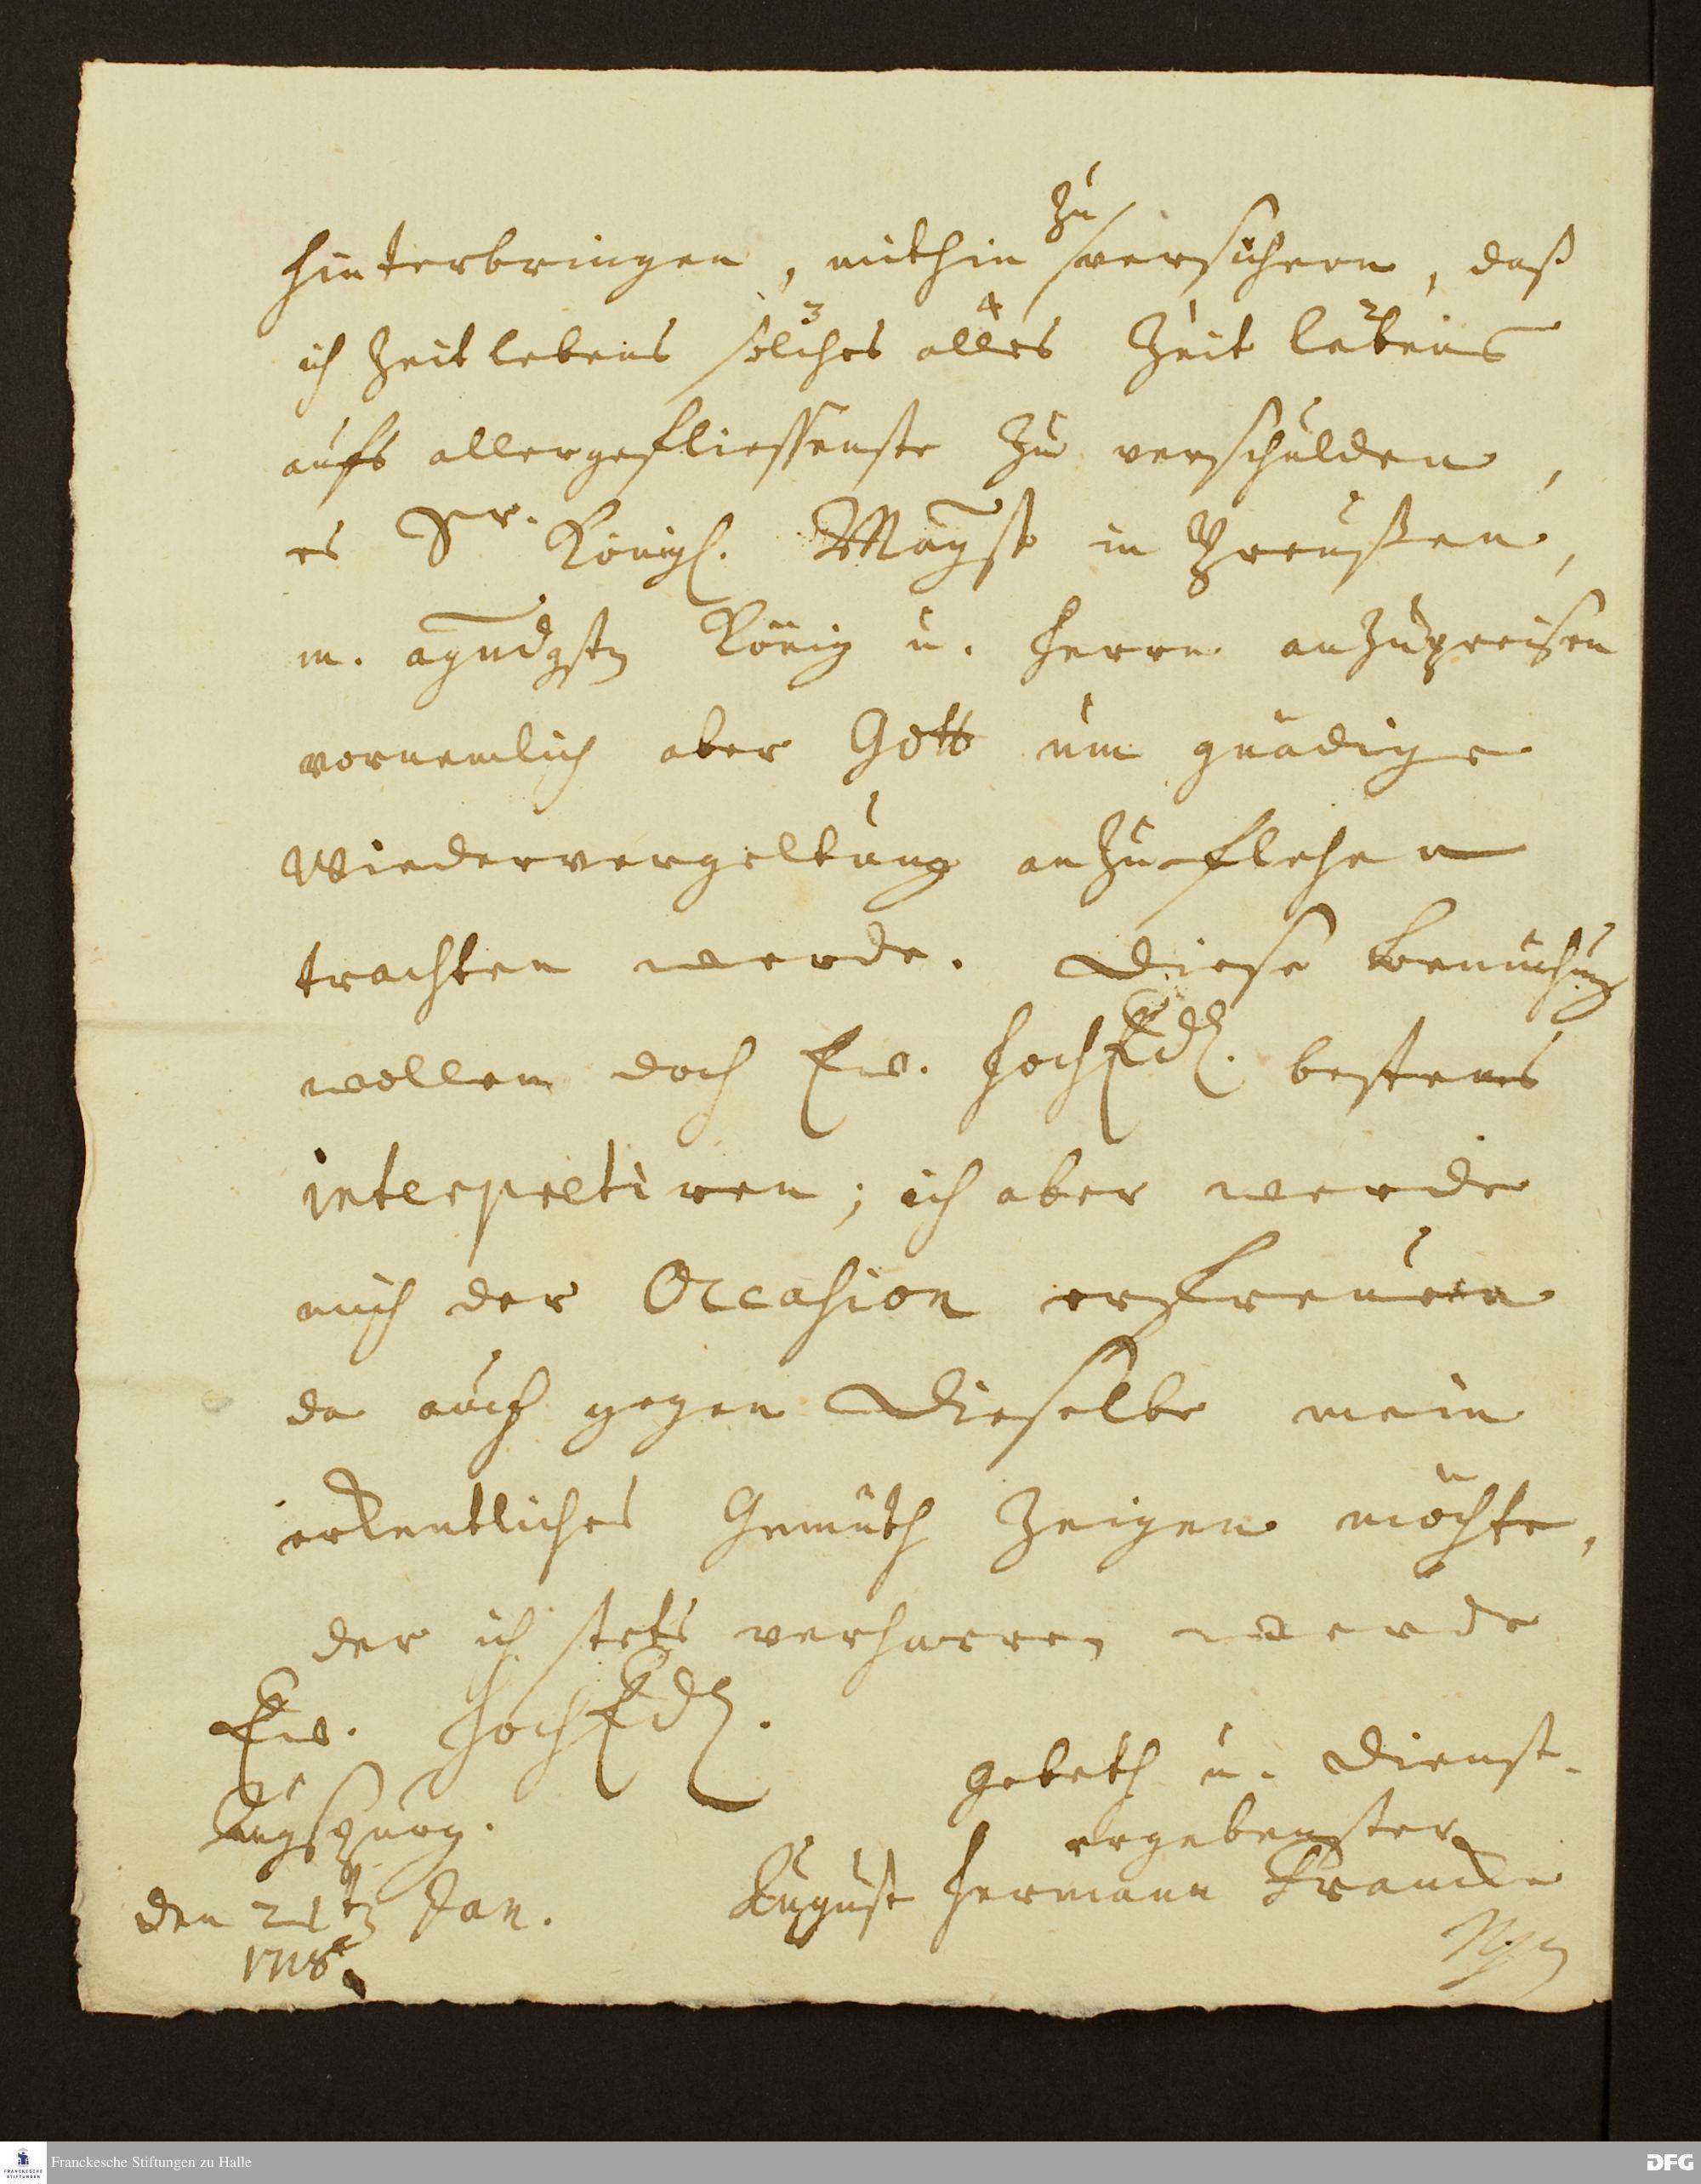 zu
hinterbringen, mithin versichern, daß
3 4 1 2
ich Zeit lebens solches alles Zeit lebens
aufs allergefliessenste zu verschulden,
es Sr. Königl. Mayst in Preußen,
m. agndgstn König u. Herrn anzupreisen
vornemlich aber Gott um gnädige
Wiedervergeltung anzuflehen
trachten werde. Diese Bemühung
wollen doch Ew. HochEdl. bestens
interpretiren; ich aber werde
mich der Occasion erfreuen
da auch gegen Dieselbe mein
erkentliches Gemüth zeigen möchte,
der ich stets verharren werde
Ew. HochEdl.
Gebeth u. Dienst-
Augspurg.
ergebenster
den 21tn Jan. August Hermann Francke
1718.
Franckesche Stiftungen zu Halle
FRANCKESCHE
STIFTUNGEN
DFG